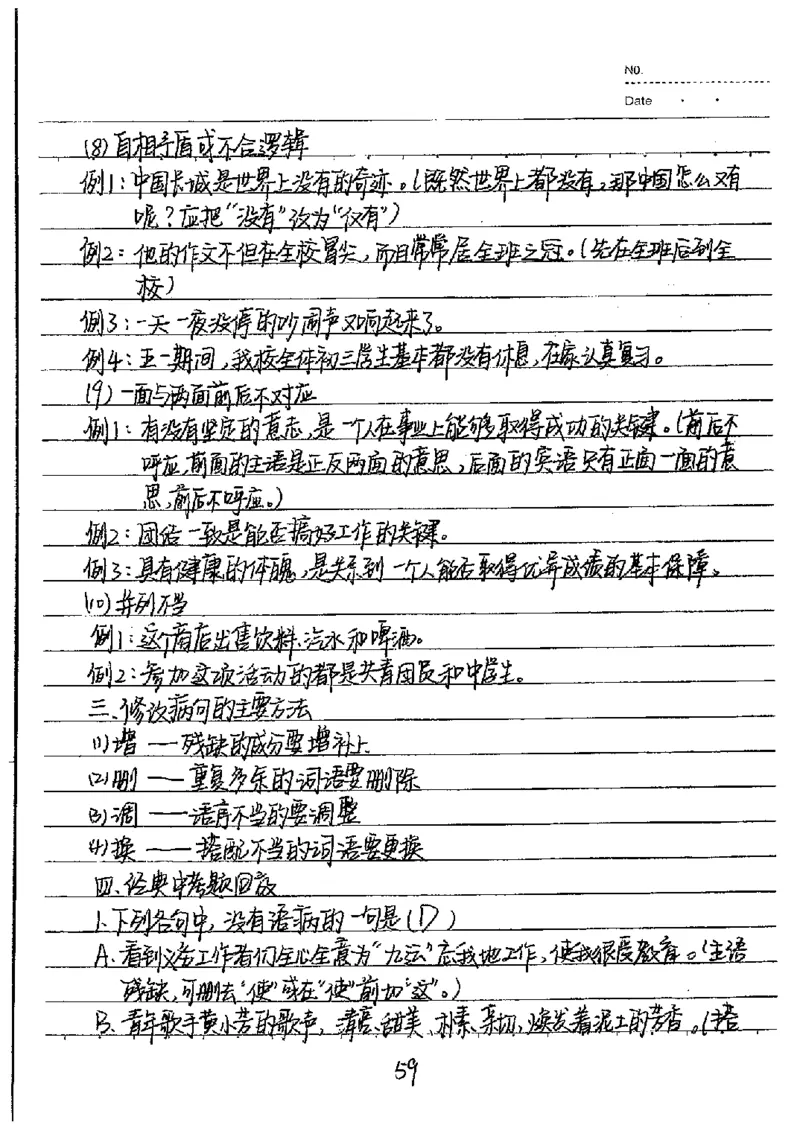 No.
Date
(8)自相矛盾或不合逻辑
例1:中国长城是世界上没有的奇迹。(既然世界上都没有,那中国怎么又有
呢?应把"没有"改为"仅有")
例2:他的作文不但在全校冒尖,而且常常居全班之冠。(先在全班后到全
校)
例3:一天一夜没停的吵闹声又响起来了。
例4:五一期间,我校全体初三学生基本都没有休息,在家认真复习。
(9)一面与两面前后不对应
例1:有没有坚定的意志,是一个人在事业上能够取得成功的关键。(前后不
呼应,前面的主语是正反两面的意思,后面的宾语只有正面一面的意
思,前后不呼应。)
例2:团结一致是能否搞好工作的关键。
例3:具有健康的体魄,是关系到一个人能否取得优异成绩的基本保障。
(10)并列不当
例1:这个商店出售饮料、汽水和啤酒。
例2:参加这项活动的都是共青团员和中学生。
三、修改病句的主要方法
(1)增——残缺的成分要增补上
(2)删——重复多余的词语要删除
(3)调——语序不当的要调整
(4)换——搭配不当的词语要更换
四、经典中考题回放
1.下列各句中,没有语病的一句是(D)
A.看到义务工作者们全心全意为"九运"忘我地工作,使我很受教育。(主语
残缺,可删去"使"或在"使"前加"这"。)
B.青年歌手黄小芳的歌声,清亮、甜美、朴素、亲切,焕发着泥土的芳香。(搭
59